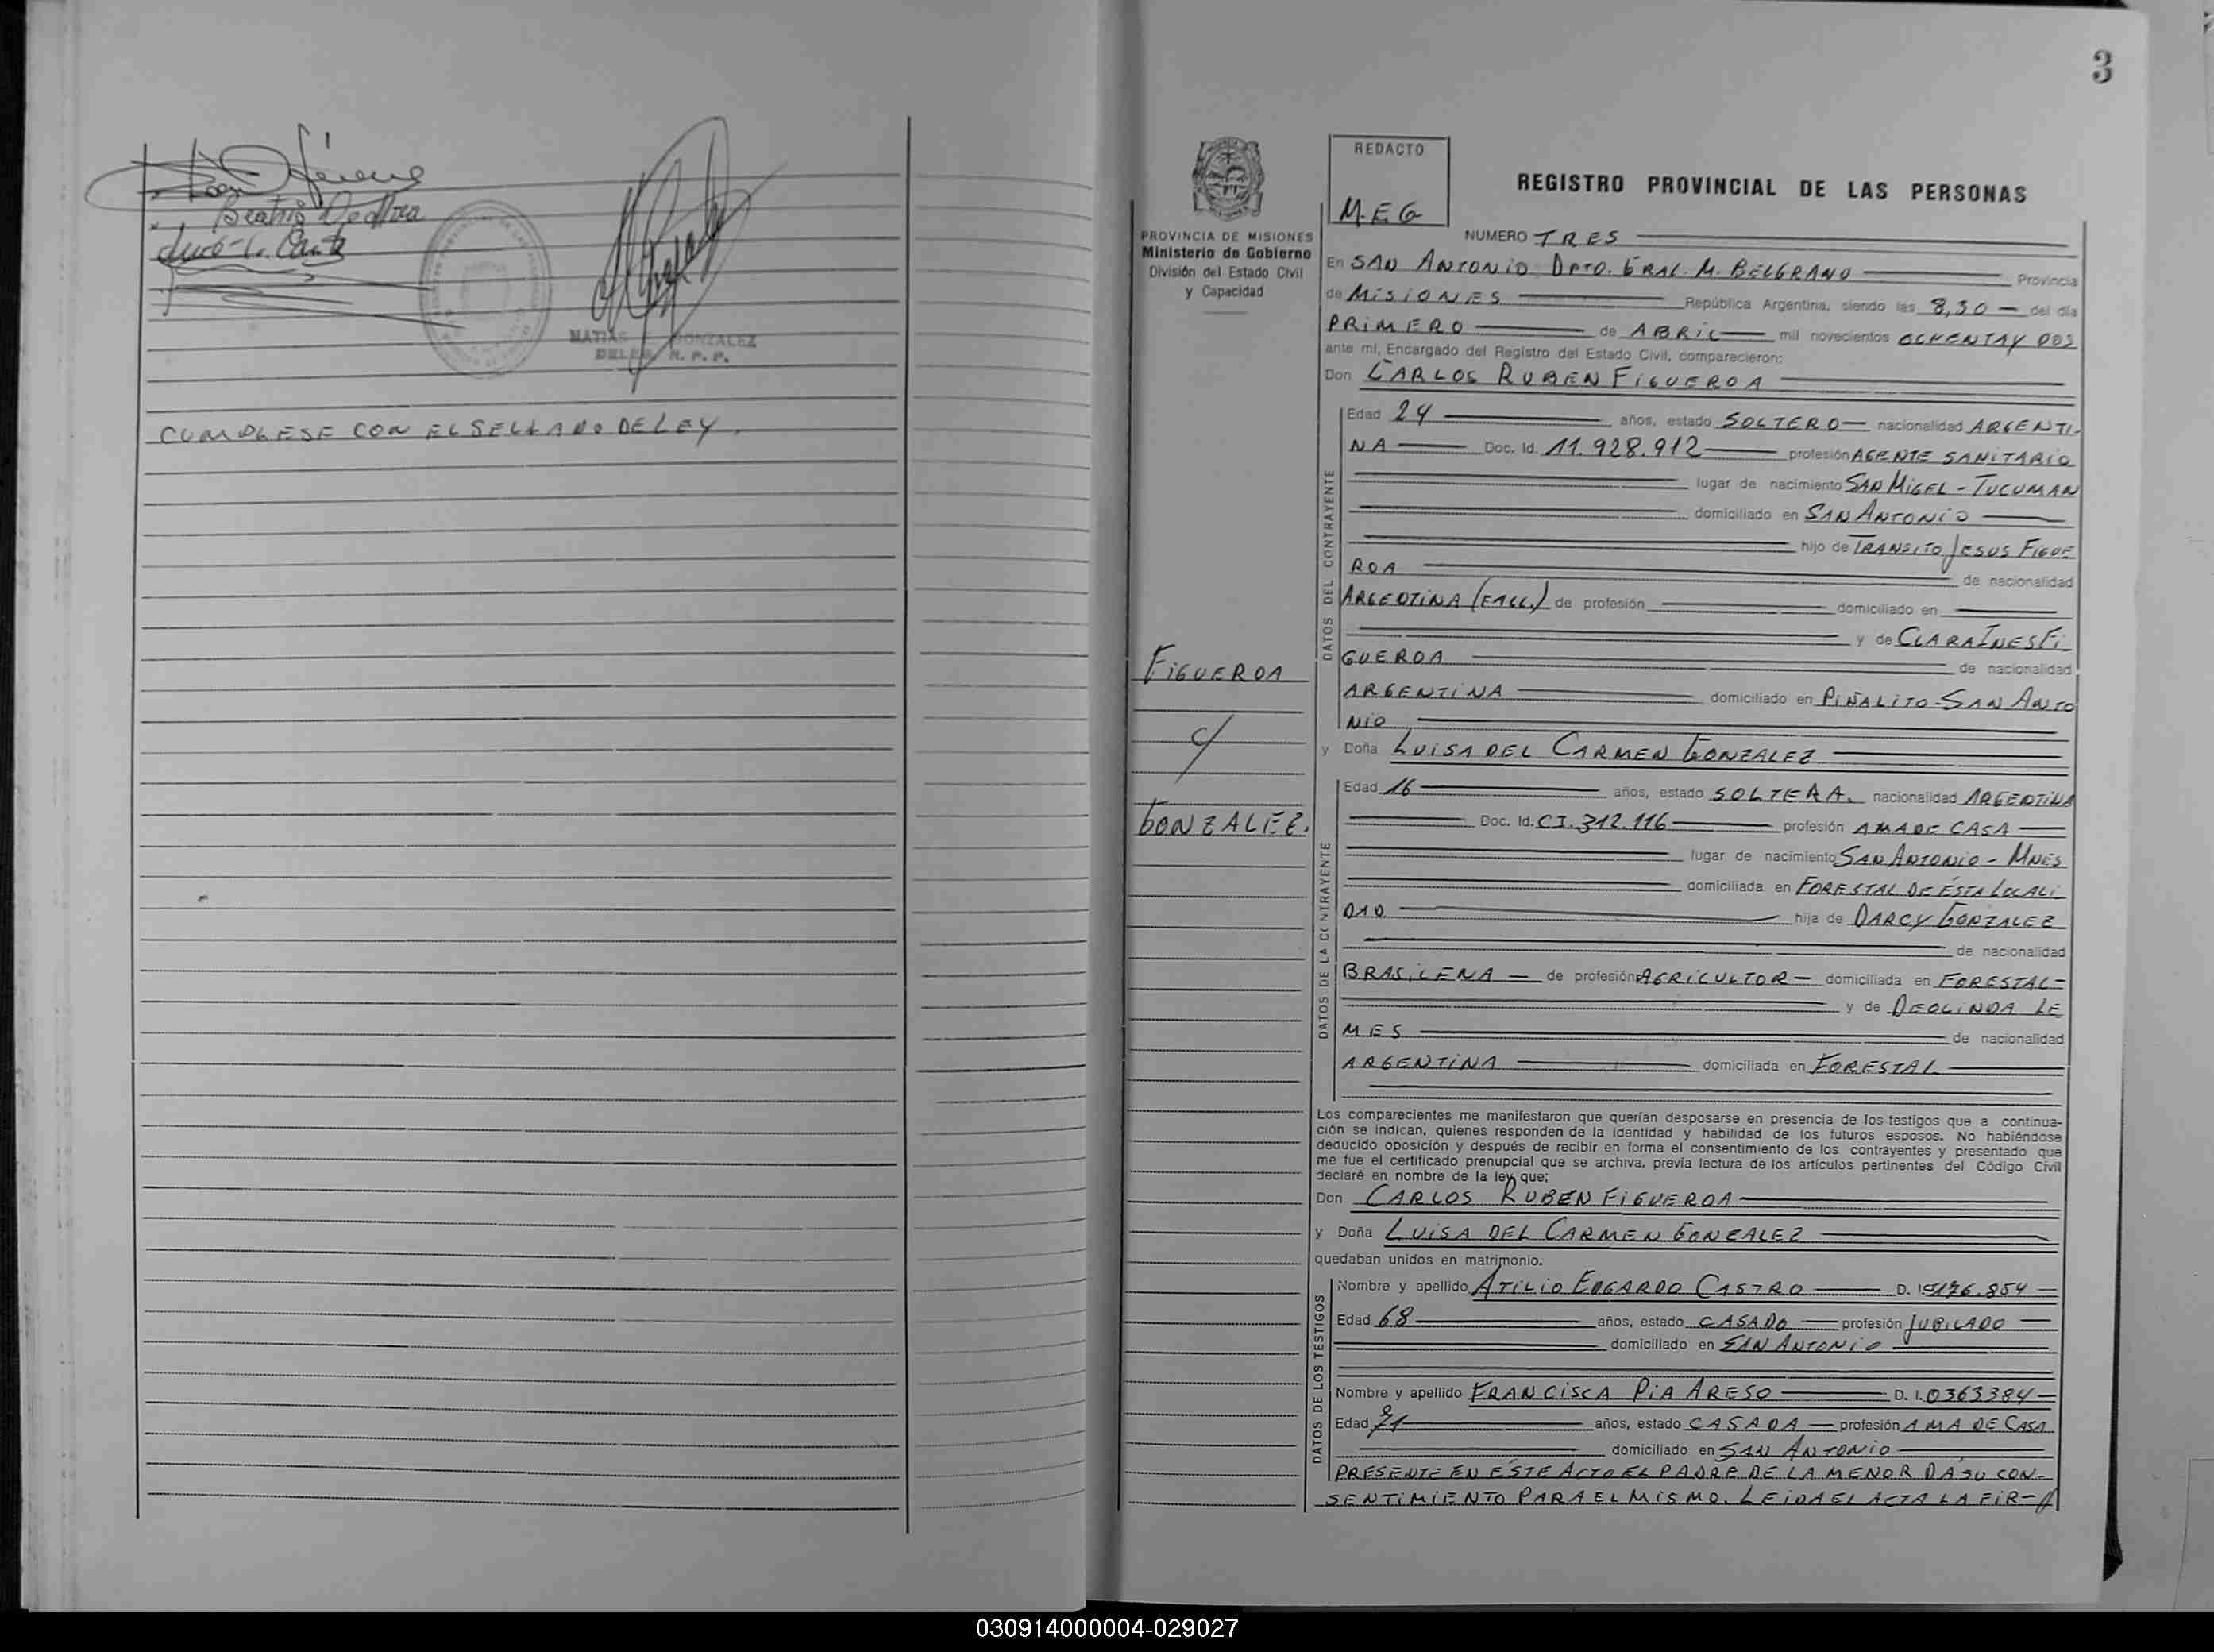 Beatriz
CUMPLESE CON EL SELLADO DE LEY.
MATIAS GONZALEZ
R. P. P.
3
REDACTO
M.E.G
REGISTRO PROVINCIAL DE LAS PERSONAS
PROVINCIA DE MISIONES
Ministerio de Gobierno
División del Estado Civil
y Capacidad
FIGUEROA
c/
GONZALEZ.
NUMERO TRES
En SAN ANTONIO DPTO. GRAL. M. BELGRANO Provincia
de MISIONES República Argentina, siendo las 8,30 del día
PRIMERO de ABRIL mil novecientos OCHENTA Y DOS
ante mí, Encargado del Registro del Estado Civil, comparecieron:
Don CARLOS RUBEN FIGUEROA
DATOS DEL CONTRAYENTE
Edad 24 años, estado SOLTERO nacionalidad ARGENTI-
NA Doc. Id. 11.928.912 profesión AGENTE SANITARIO
lugar de nacimiento SAN MIGEL - TUCUMAN
domiciliado en SAN ANTONIO
hijo de TRANSITO JESUS FIGUE
ROA de nacionalidad
ARGENTINA (FALL.) de profesión domiciliado en
y de CLARA INES FI-
GUEROA de nacionalidad
ARGENTINA domiciliado en PIÑALITO-SAN ANTO
NIO
y Doña LUISA DEL CARMEN GONZALEZ
DATOS DE LA CONTRAYENTE
Edad 16 años, estado SOLTERA. nacionalidad ARGENTINA
Doc. Id. CI. 312.116 profesión AMA DE CASA
lugar de nacimiento SAN ANTONIO - MNES
domiciliada en FORESTAL DE ESTA LOCALI
DAD. hija de DARCY GONZALEZ
de nacionalidad
BRASILENA de profesión AGRICULTOR domiciliada en FORESTAL
y de DEOLINDA LE
MES de nacionalidad
ARGENTINA domiciliada en FORESTAL
Los comparecientes me manifestaron que querían desposarse en presencia de los testigos que a continua-
ción se indican, quienes responden de la identidad y habilidad de los futuros esposos. No habiéndose
deducido oposición y después de recibir en forma el consentimiento de los contrayentes y presentado que
me fue el certificado prenupcial que se archiva, previa lectura de los artículos pertinentes del Código Civil
declaré en nombre de la ley que:
Don CARLOS RUBEN FIGUEROA
y Doña LUISA DEL CARMEN GONZALEZ
quedaban unidos en matrimonio.
DATOS DE LOS TESTIGOS
Nombre y apellido ATILIO EDGARDO CASTRO D. I.
Edad 68 años, estado CASADO profesión JUBILADO
domiciliado en SAN ANTONIO
Nombre y apellido FRANCISCA PIA ARESO D. I. 0363384
Edad años, estado CASADA profesión AMA DE CASA
domiciliado en SAN ANTONIO
PRESENTE EN ESTE ACTO EL PADRE DE LA MENOR DA SU CON-
SENTIMIENTO PARA EL MISMO. LEIDA EL ACTA LA FIR-
030914000004-029027